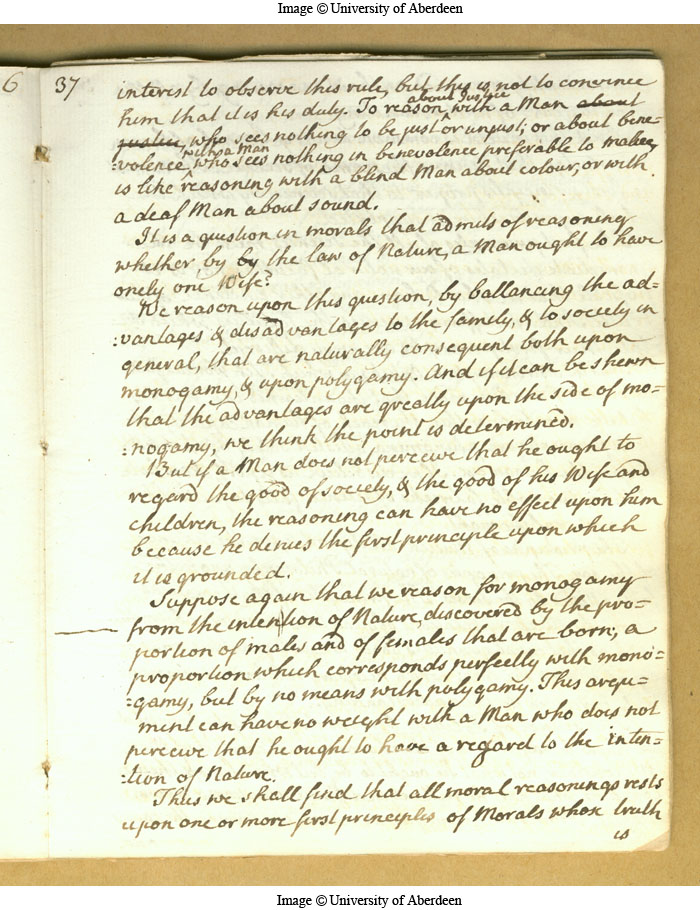 Image © University of Aberdeen
6
37
interest to observe this rule, but this is not to convince
him that it is his duty. To reason about Justice with a Man about
justice, who sees nothing to be just or unjust; or about bene-
:volence with a Man who sees nothing in benevolence preferable to malice,
is like reasoning with a blind Man about colour, or with
a deaf Man about sound.
It is a question in morals that admits of reasoning
whether, by by the law of Nature, a Man ought to have
onely one Wife?
We reason upon this question, by ballancing the ad-
:vantages & disadvantages to the family, & to society in
general, that are naturally consequent both upon
monogamy, & upon polygamy. And if it can be shewn
that the advantages are greatly upon the side of mo-
:nogamy, we think the point is determined.
But if a Man does not perceive that he ought to
regard the good of society, & the good of his Wife and
children, the reasoning can have no effect upon him
because he denies the first principle upon which
it is grounded.
Suppose again that we reason for monogamy
from the intention of Nature, discovered by the pro-
portion of males and of females that are born; a
proportion which corresponds perfectly with mono-
:gamy, but by no means with polygamy. This argu-
ment can have no weight with a Man who does not
perceive that he ought to have a regard to the inten-
:tion of Nature.
Thus we shall find that all moral reasonings rests
upon one or more first principles of Morals whose truth
is
Image © University of Aberdeen